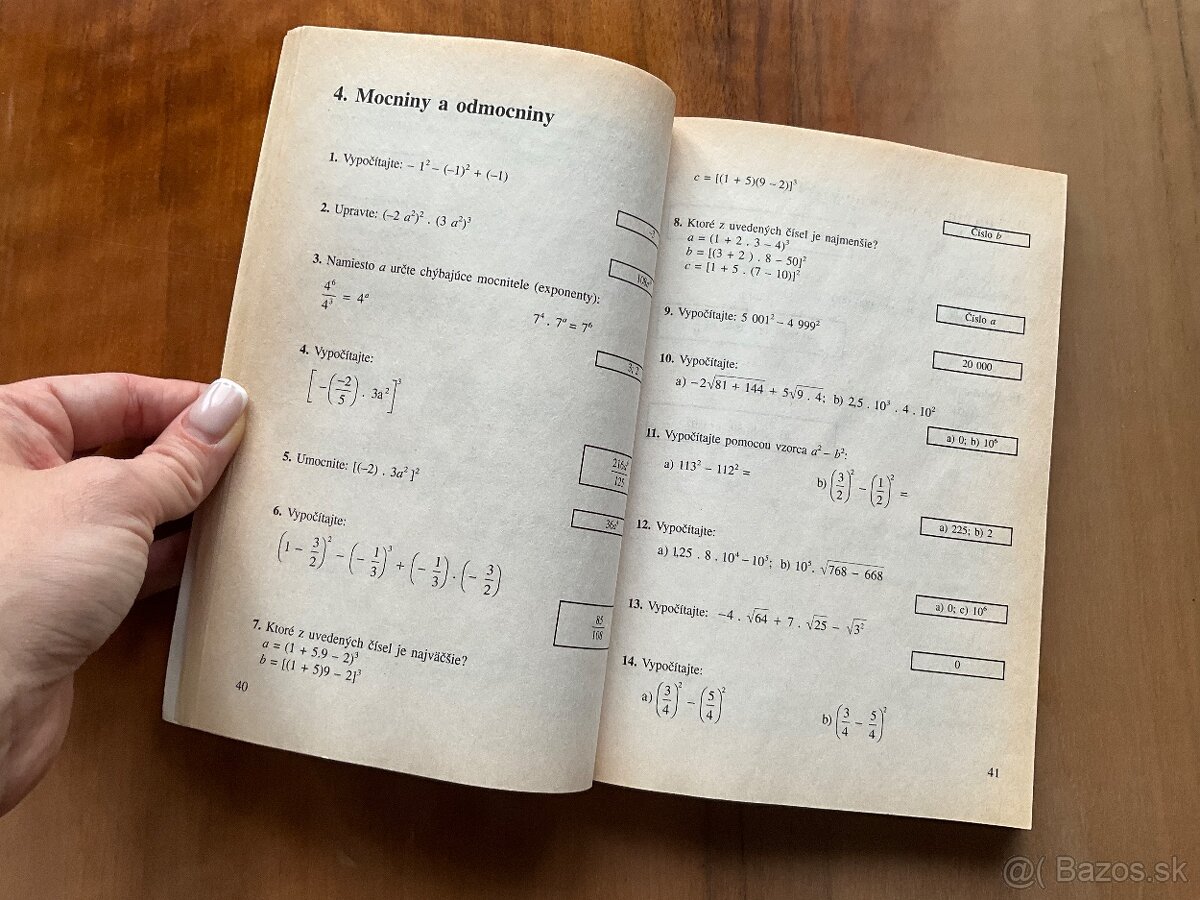 4. Mocniny a odmocniny
1. Vypočítajte: – 1² – (–1)² + (–1)
2. Upravte: (–2 a²)² . (3 a²)³
3. Namiesto a určte chýbajúce mocnitele (exponenty):
4⁶/4³ = 4ᵃ 7⁴ . 7ᵃ = 7⁶
3; 2
4. Vypočítajte:
[–(–2/5) . 3a²]³
216a⁶/125
5. Umocnite: [(–2) . 3a²]²
36a⁴
6. Vypočítajte:
(1 – 3/2)² – (– 1/3)³ + (– 1/3) . (– 3/2)
85/108
7. Ktoré z uvedených čísel je najväčšie?
a = (1 + 5.9 – 2)³
b = [(1 + 5)9 – 2]³
40
c = [(1 + 5)(9 – 2)]³
Číslo b
8. Ktoré z uvedených čísel je najmenšie?
a = (1 + 2 . 3 – 4)³
b = [(3 + 2) . 8 – 50]²
c = [1 + 5 . (7 – 10)]²
Číslo a
9. Vypočítajte: 5 001² – 4 999²
20 000
10. Vypočítajte:
a) –2√81 + 144 + 5√9 . 4; b) 2,5 . 10³ . 4 . 10²
a) 0; b) 10⁶
11. Vypočítajte pomocou vzorca a² – b²:
a) 113² – 112² = b) (3/2)² – (1/2)² =
a) 225; b) 2
12. Vypočítajte:
a) 1,25 . 8 . 10⁴ – 10⁵; b) 10⁵. √768 – 668
a) 0; c) 10⁶
13. Vypočítajte: –4 . √64 + 7 . √25 – √3²
0
14. Vypočítajte:
a) (3/4)² – (5/4)² b) (3/4 – 5/4)²
41
@( Bazos.sk